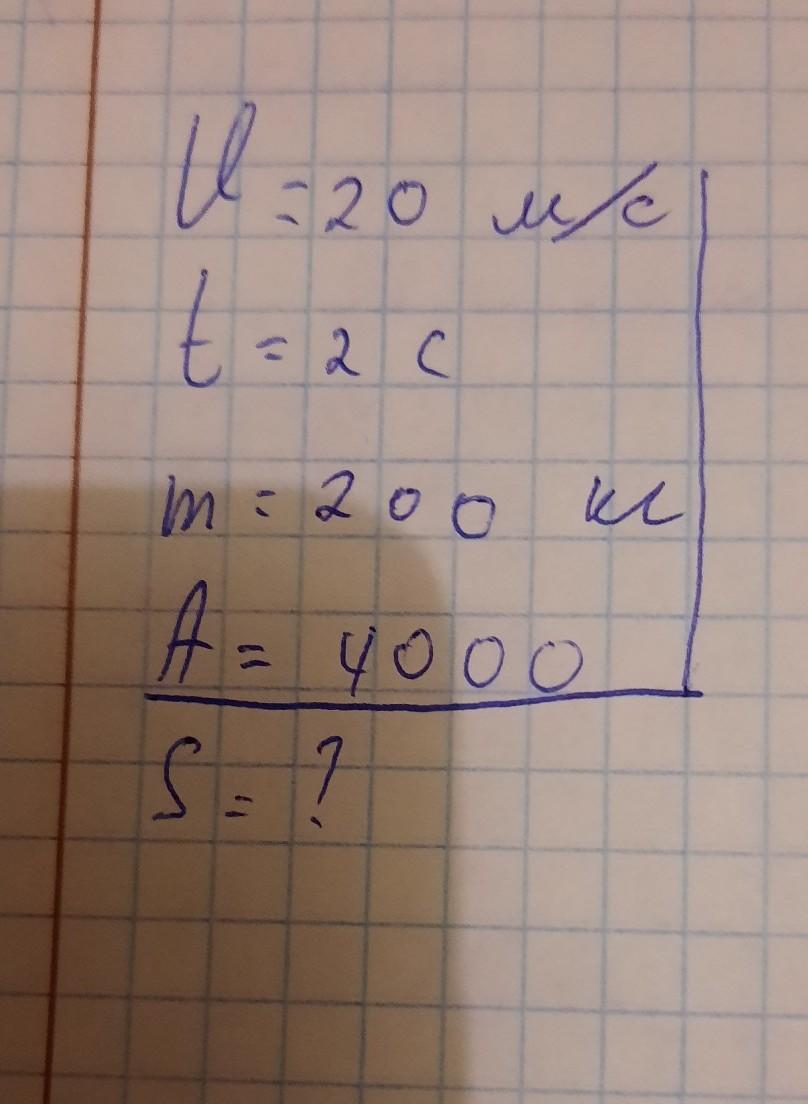 V = 20 м/с
t = 2 с
m = 200 кг
A = 4000
S = ?